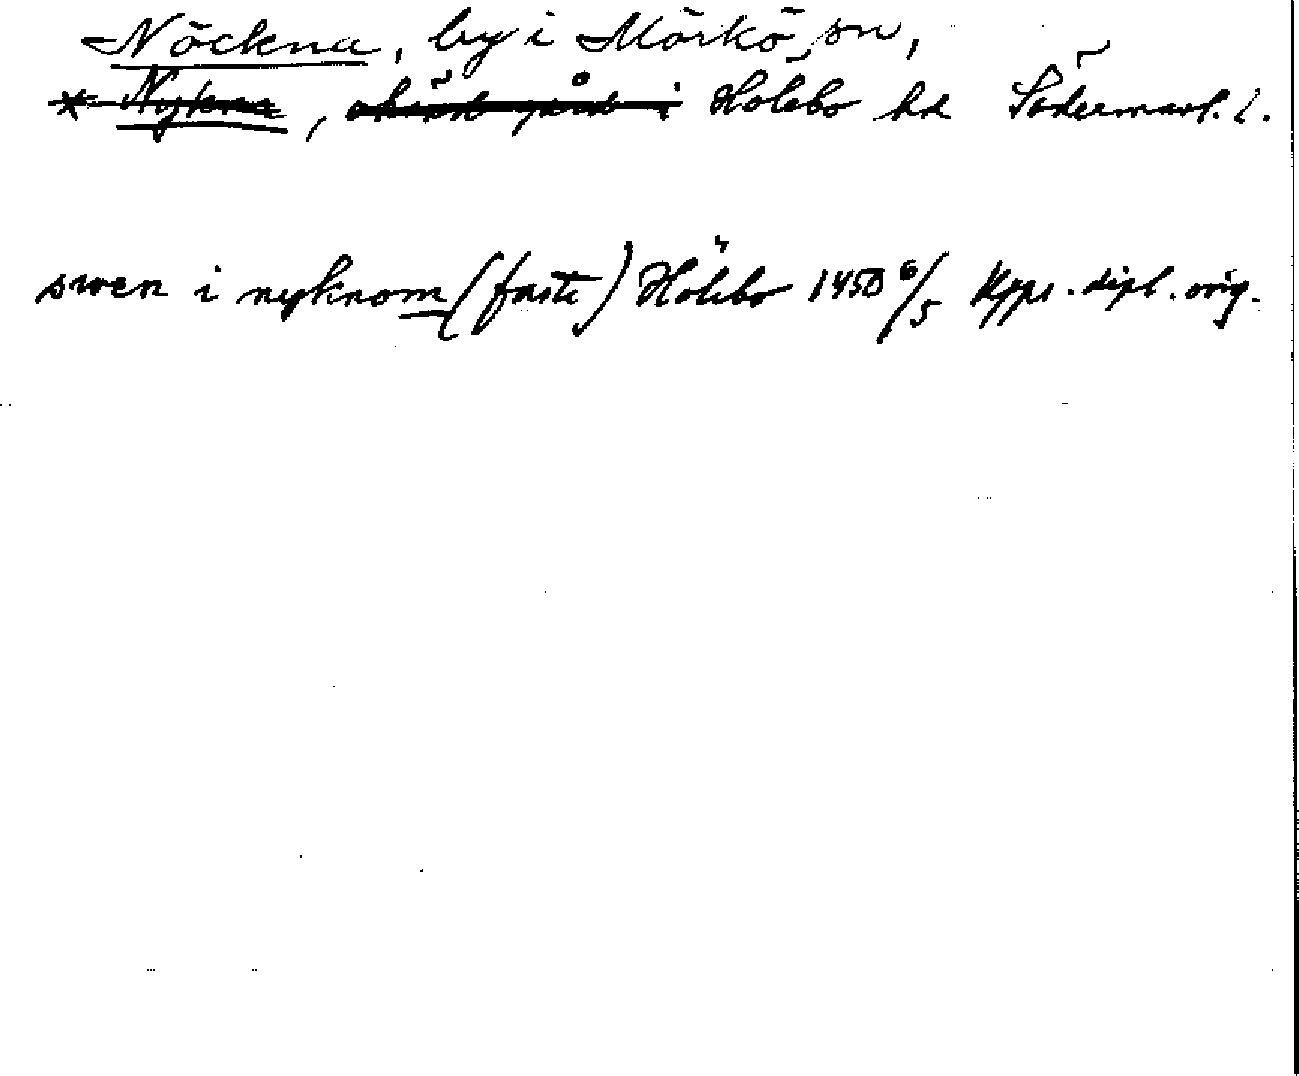 Nöckna, by i Mörkö sn,
* Nykna, okänt gård i Hölebo hd Södermanl. l.
swen i nyknom (faste) Hölebo 1450 6/5 Kpps. dipl. orig.